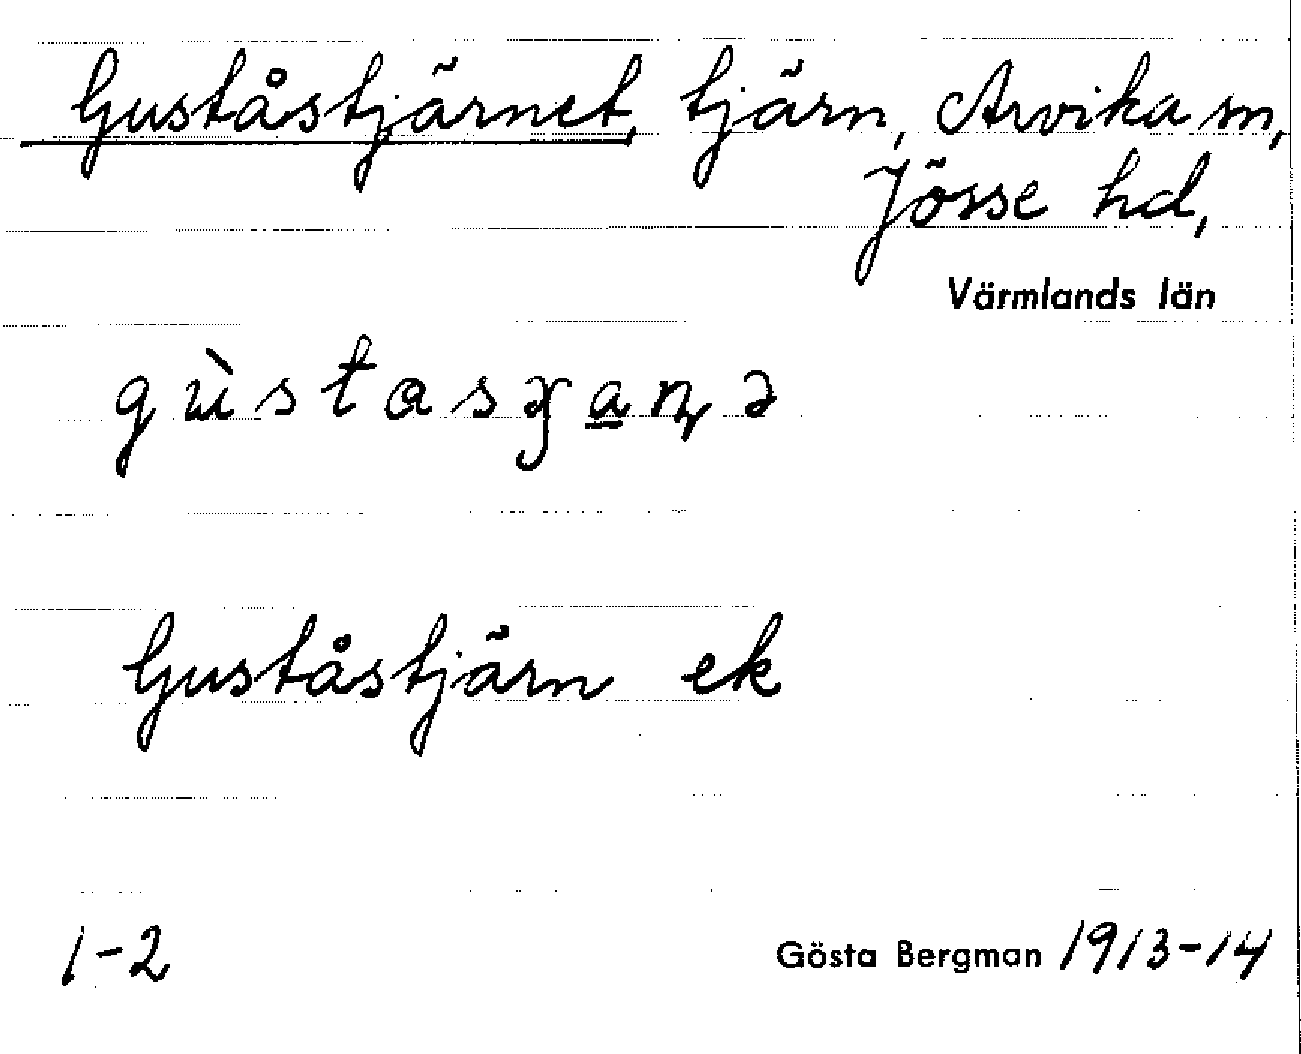 Guståstjärnet, tjärn, Arvika sn,
Jösse hd,
Värmlands län
Guståstjärn ek
1-2
Gösta Bergman 1913-14